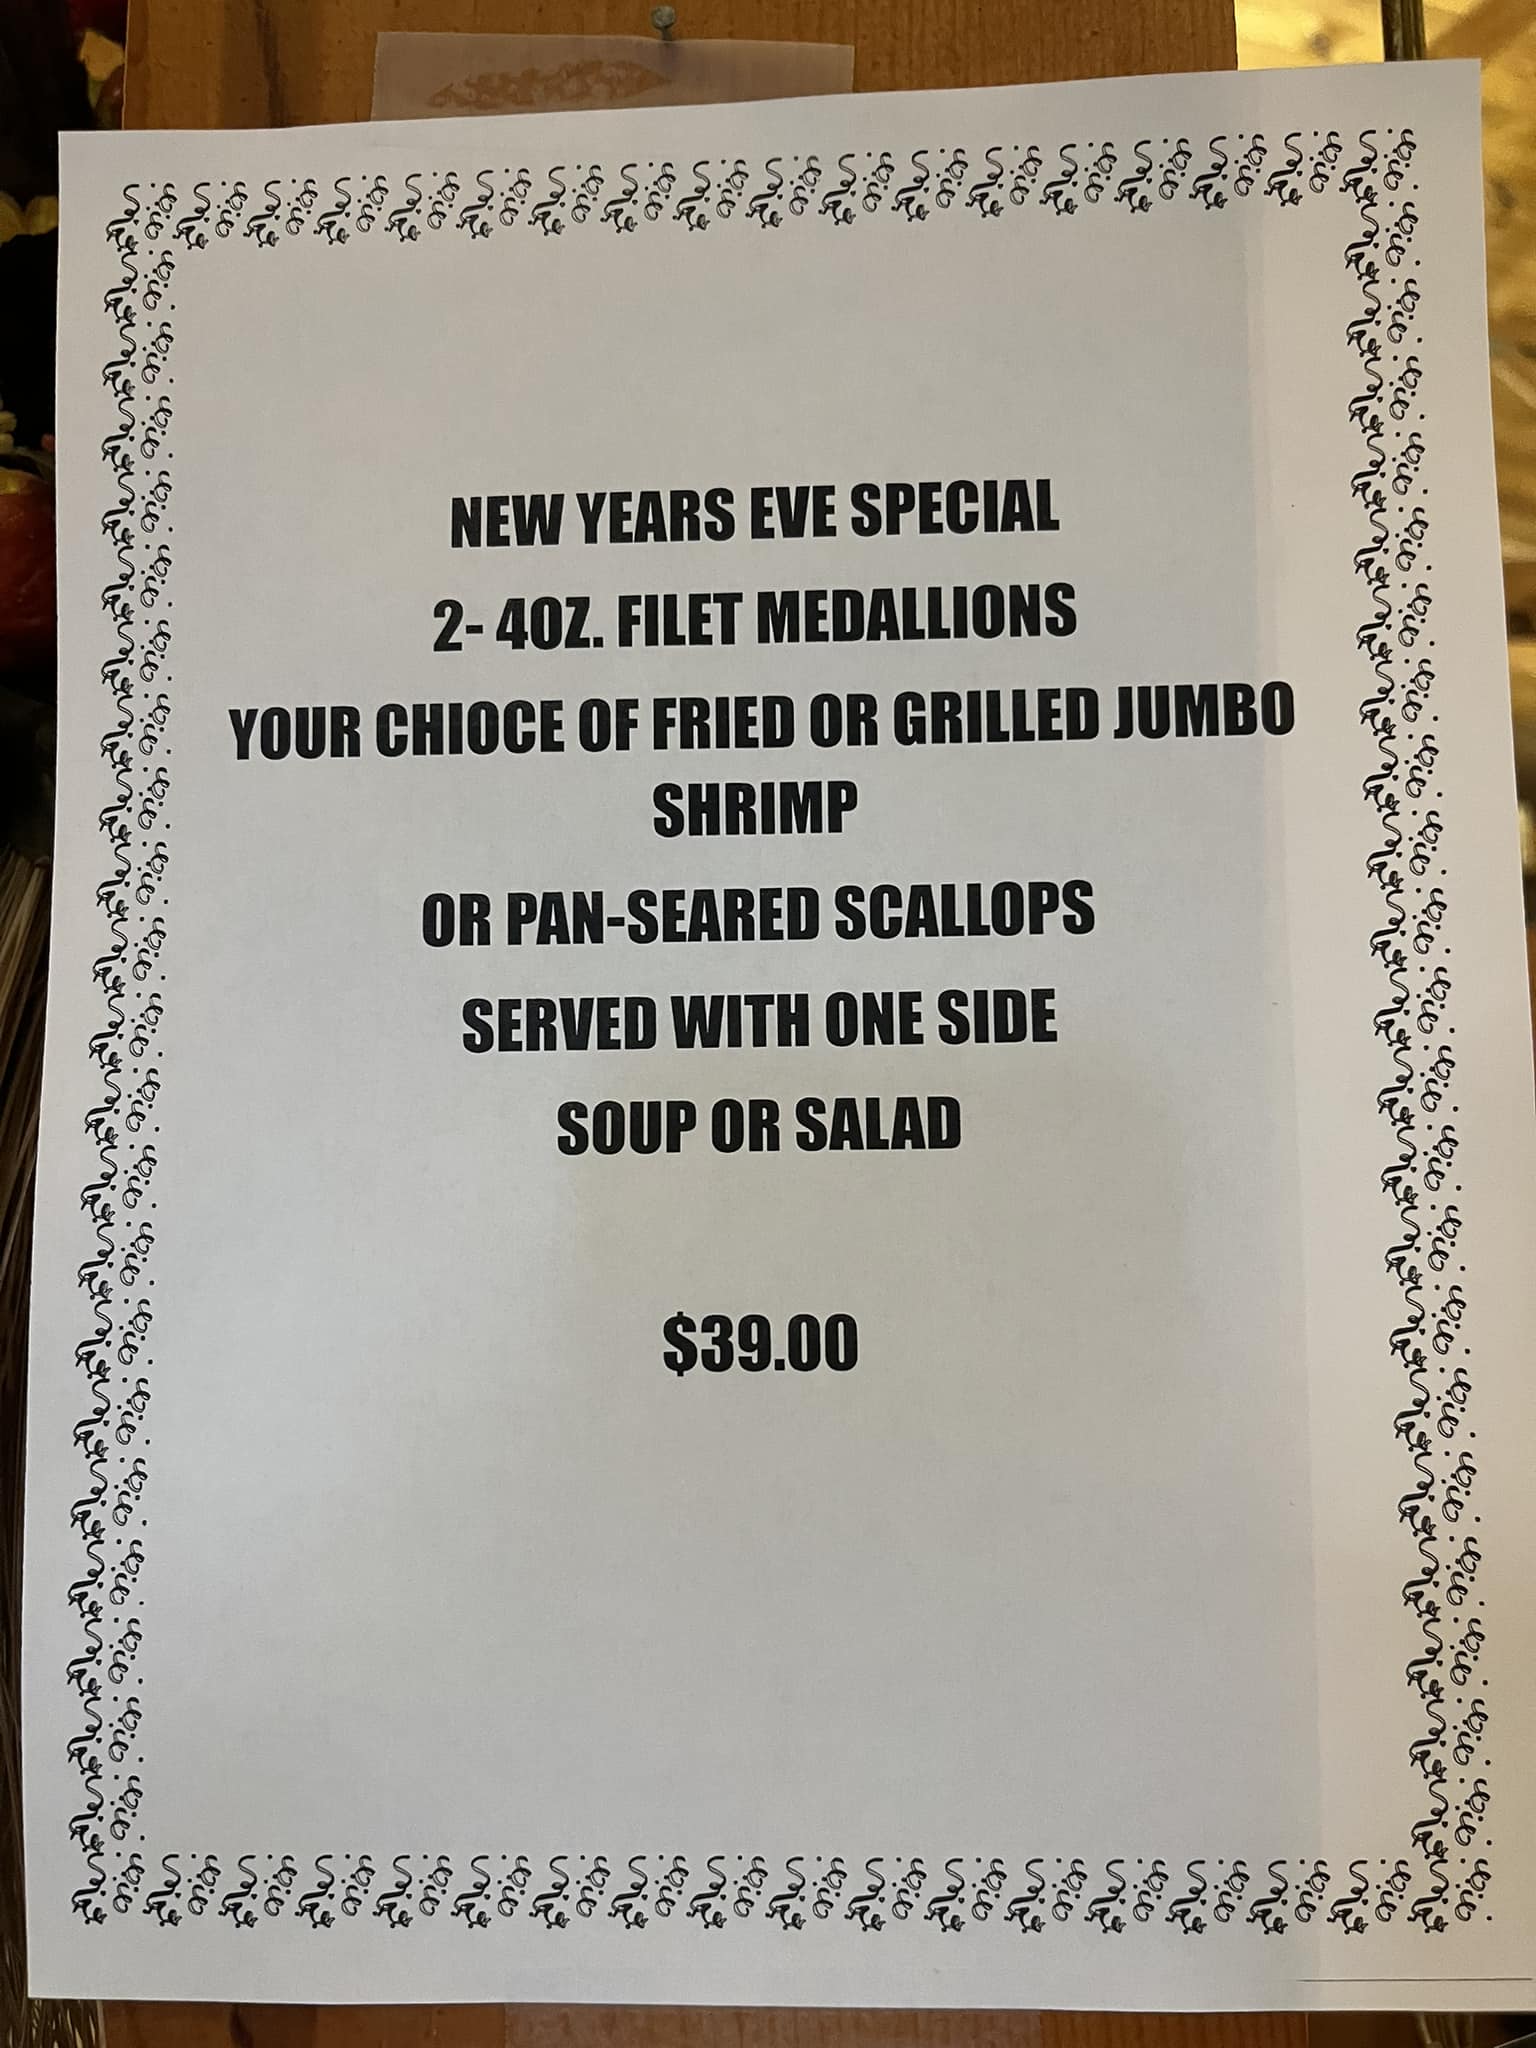 NEW YEARS EVE SPECIAL
2- 4OZ. FILET MEDALLIONS
YOUR CHIOCE OF FRIED OR GRILLED JUMBO
SHRIMP
OR PAN-SEARED SCALLOPS
SERVED WITH ONE SIDE
SOUP OR SALAD
$39.00